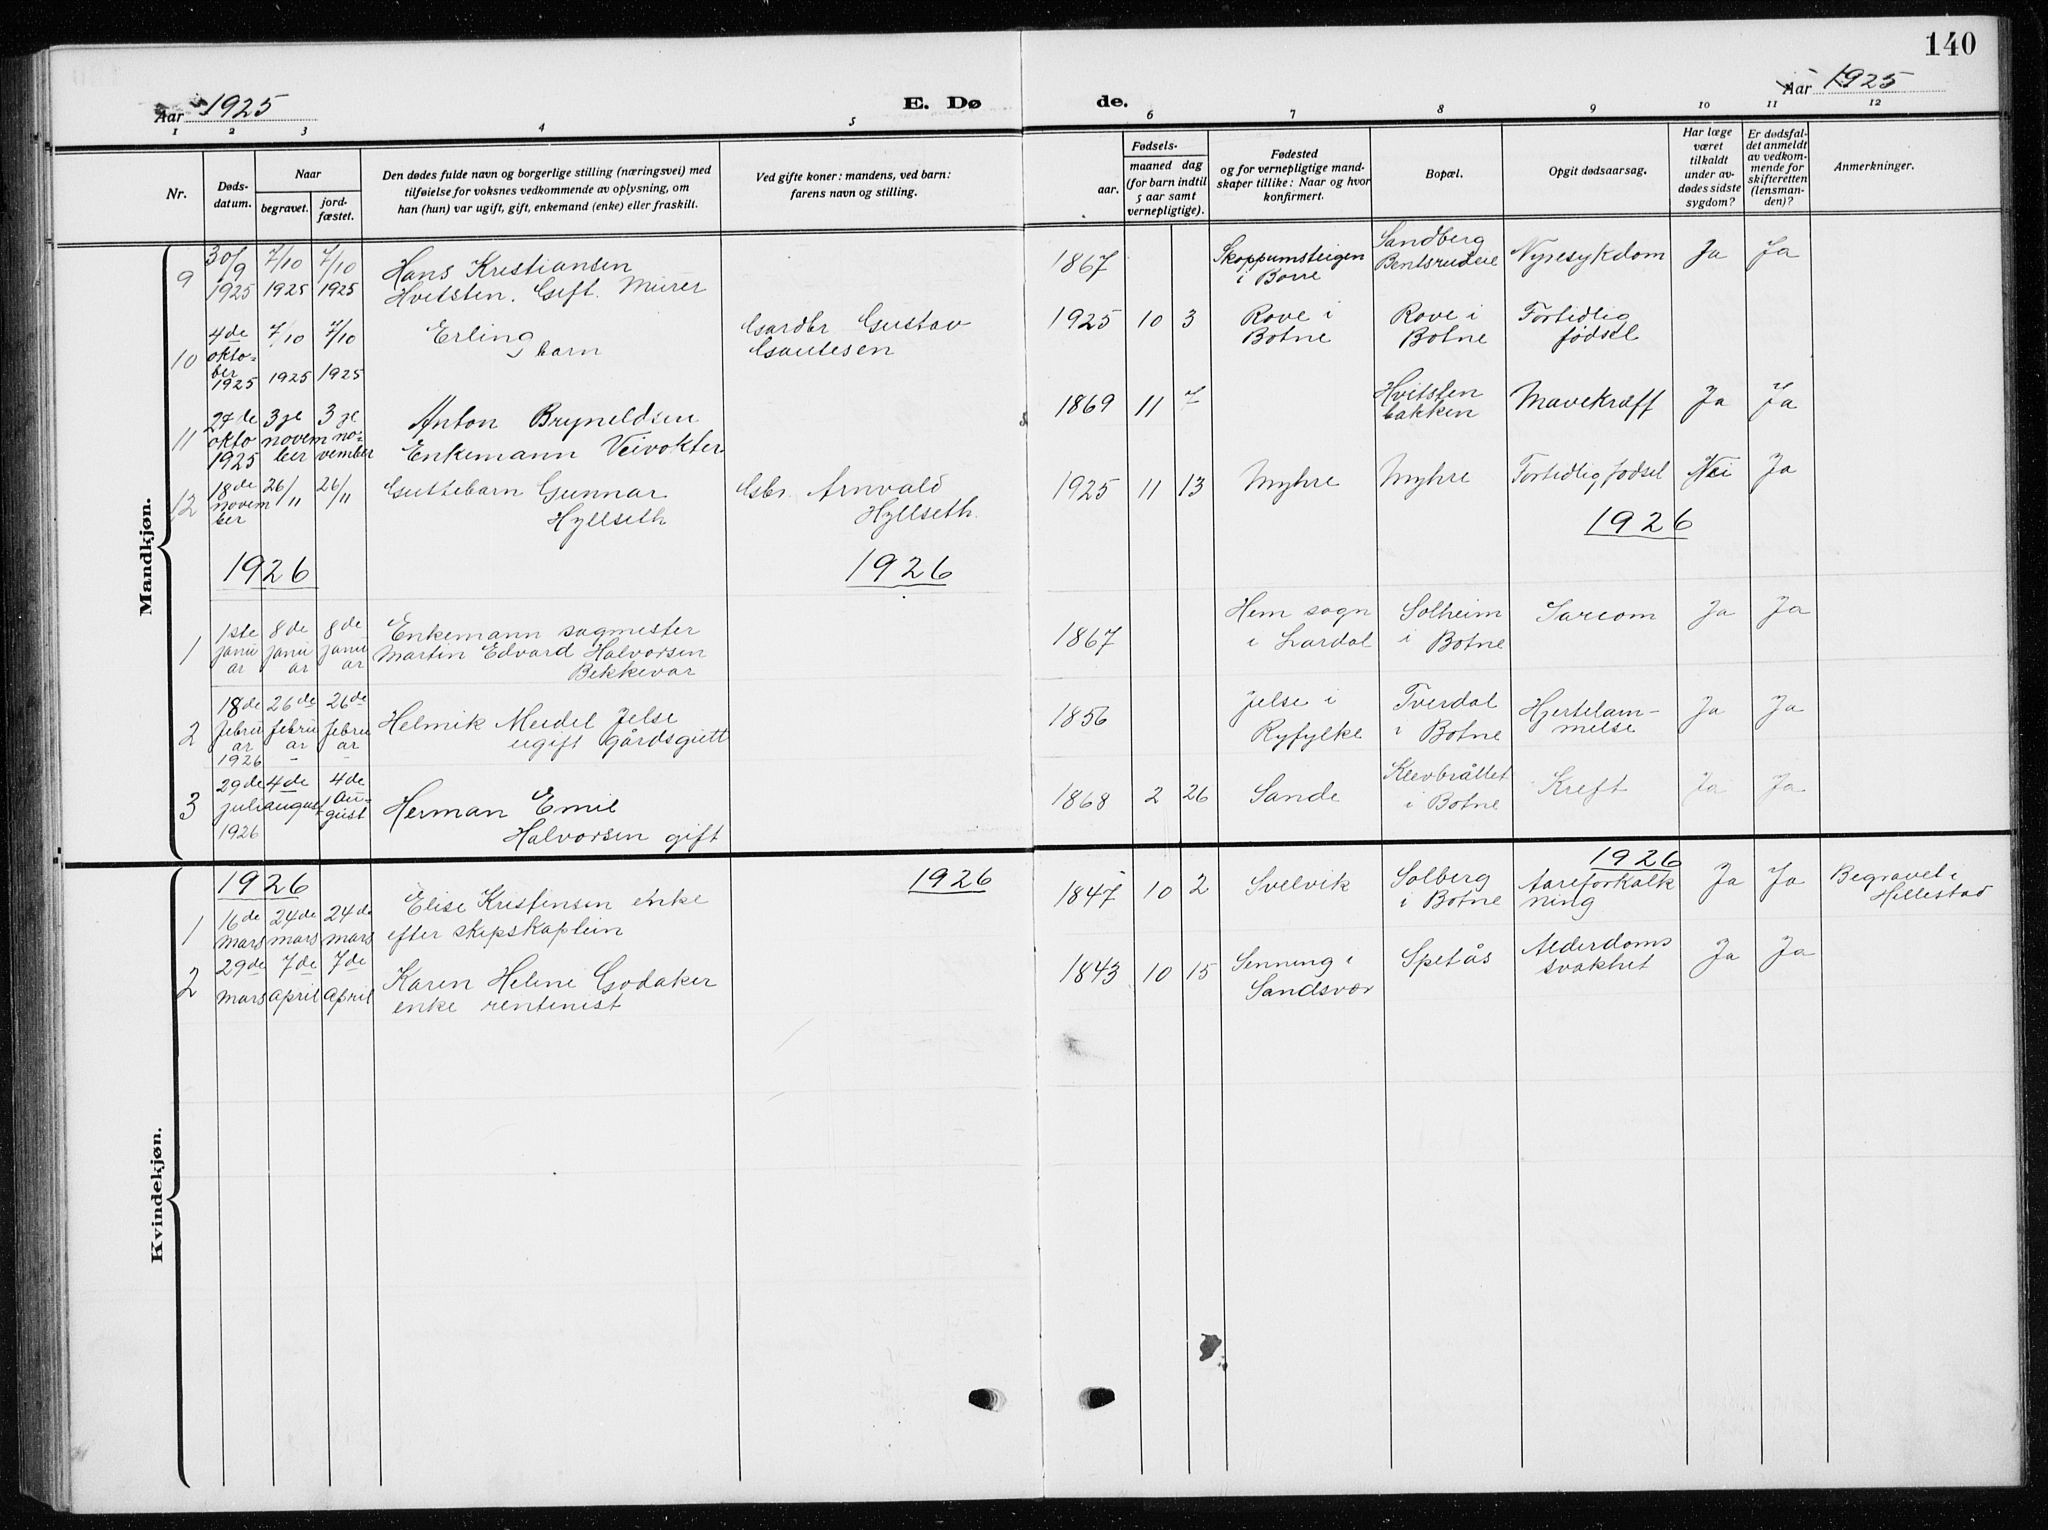 140
Aar 1925
E. Dø
de.
Aar 1925
1 2 3 4 5 6 7 8 9 10 11 12
Nr.
Døds-
datum.
Naar
begravet.
jord-
fæstet.
Den dødes fulde navn og borgerlige stilling (næringsvei) med
tilføielse for voksnes vedkommende av oplysning, om
han (hun) var ugift, gift, enkemand (enke) eller fraskilt.
Ved gifte koner: mandens, ved barn:
farens navn og stilling.
Fødsels-
aar.
maaned dag
(for barn indtil
5 aar samt
vernepligtige).
Fødested
og for vernepligtige mand-
skaper tillike: Naar og hvor
konfirmert.
Bopæl.
Opgit dødsaarsag.
Har læge
været
tilkaldt
under av-
dødes sidste
sygdom?
Er dødsfal-
det anmeldt
av vedkom-
mende for
skifteretten
(lensman-
den)?
Anmerkninger.
Mandkjøn.
9
30/9
1925
7/10
1925
7/10
1925
Hans Kristiansen
Hvitsten. Gift. Murer
1867
Skoppumsteigen
i Borre
Sandberg
Bentsrudeie
Nyresykdom
Ja
Ja
10
4de
okto-
ber
1925
7/10
1925
7/10
1925
Erling
barn
Gardbr Gustav
Gautesen
1925 10 3
Rove i
Botne
Rove i
Botne
Fortidlig
fødsel
11
27de
okto
1925
3je
novem
ber
3je
no-
vember
Anton Bryneldsen
Enkemann Veivokter
1869 11
Hvitsten
bakken
Mavekræft
Ja
Ja
12
18de
novem
ber
26/11
26/11
Guttebarn Gunnar
Hyllseth
Gbr. Arnvald
Hyllseth.
1925 11 13
Myhre
Myhre
Fortidlig fødsel
Nei
Ja
1926
1926
1926
1
1ste
janu
ar
8de
janu
ar
8de
janu
ar
Enkemann sagmester
Martin Edvard Halvorsen
Bekkevar
1867
Hem sogn
i Lardal
Solheim
i Botne
Sarcom
Ja
Ja
2
18de
febru
ar
1926
26de
febru
ar
26de
febru
ar
Helmik Meidel Jelse
ugift gårdsgutt
1856
Jelse i
Ryfylke
Tverdal
i Botne
Hjertelam-
melse
Ja
Ja
3
29de
juli
1926
4de
august
4de
Au-
gust
Herman Emil
Halvorsen gift
1868 2 26
Sande
Klevbråttet
i Botne
Kreft
Ja
Ja
Kvindekjøn.
1926
1926
1926
1
16de
mars
24de
mars
24de
mars
Elise Kristensen enke
efter skipskaptein
1847 10 2
Svelvik
Solberg
i Botne
Aareforkalk
ning
Ja
Ja
Begravet i
Hillestad
2
29de
mars
7de
april
7de
april
Karen Heline Godaker
enke rentenist
1843 10 15
Senning i
Sandsvær
Spetås
Alderdoms
svakhet
Ja
Ja